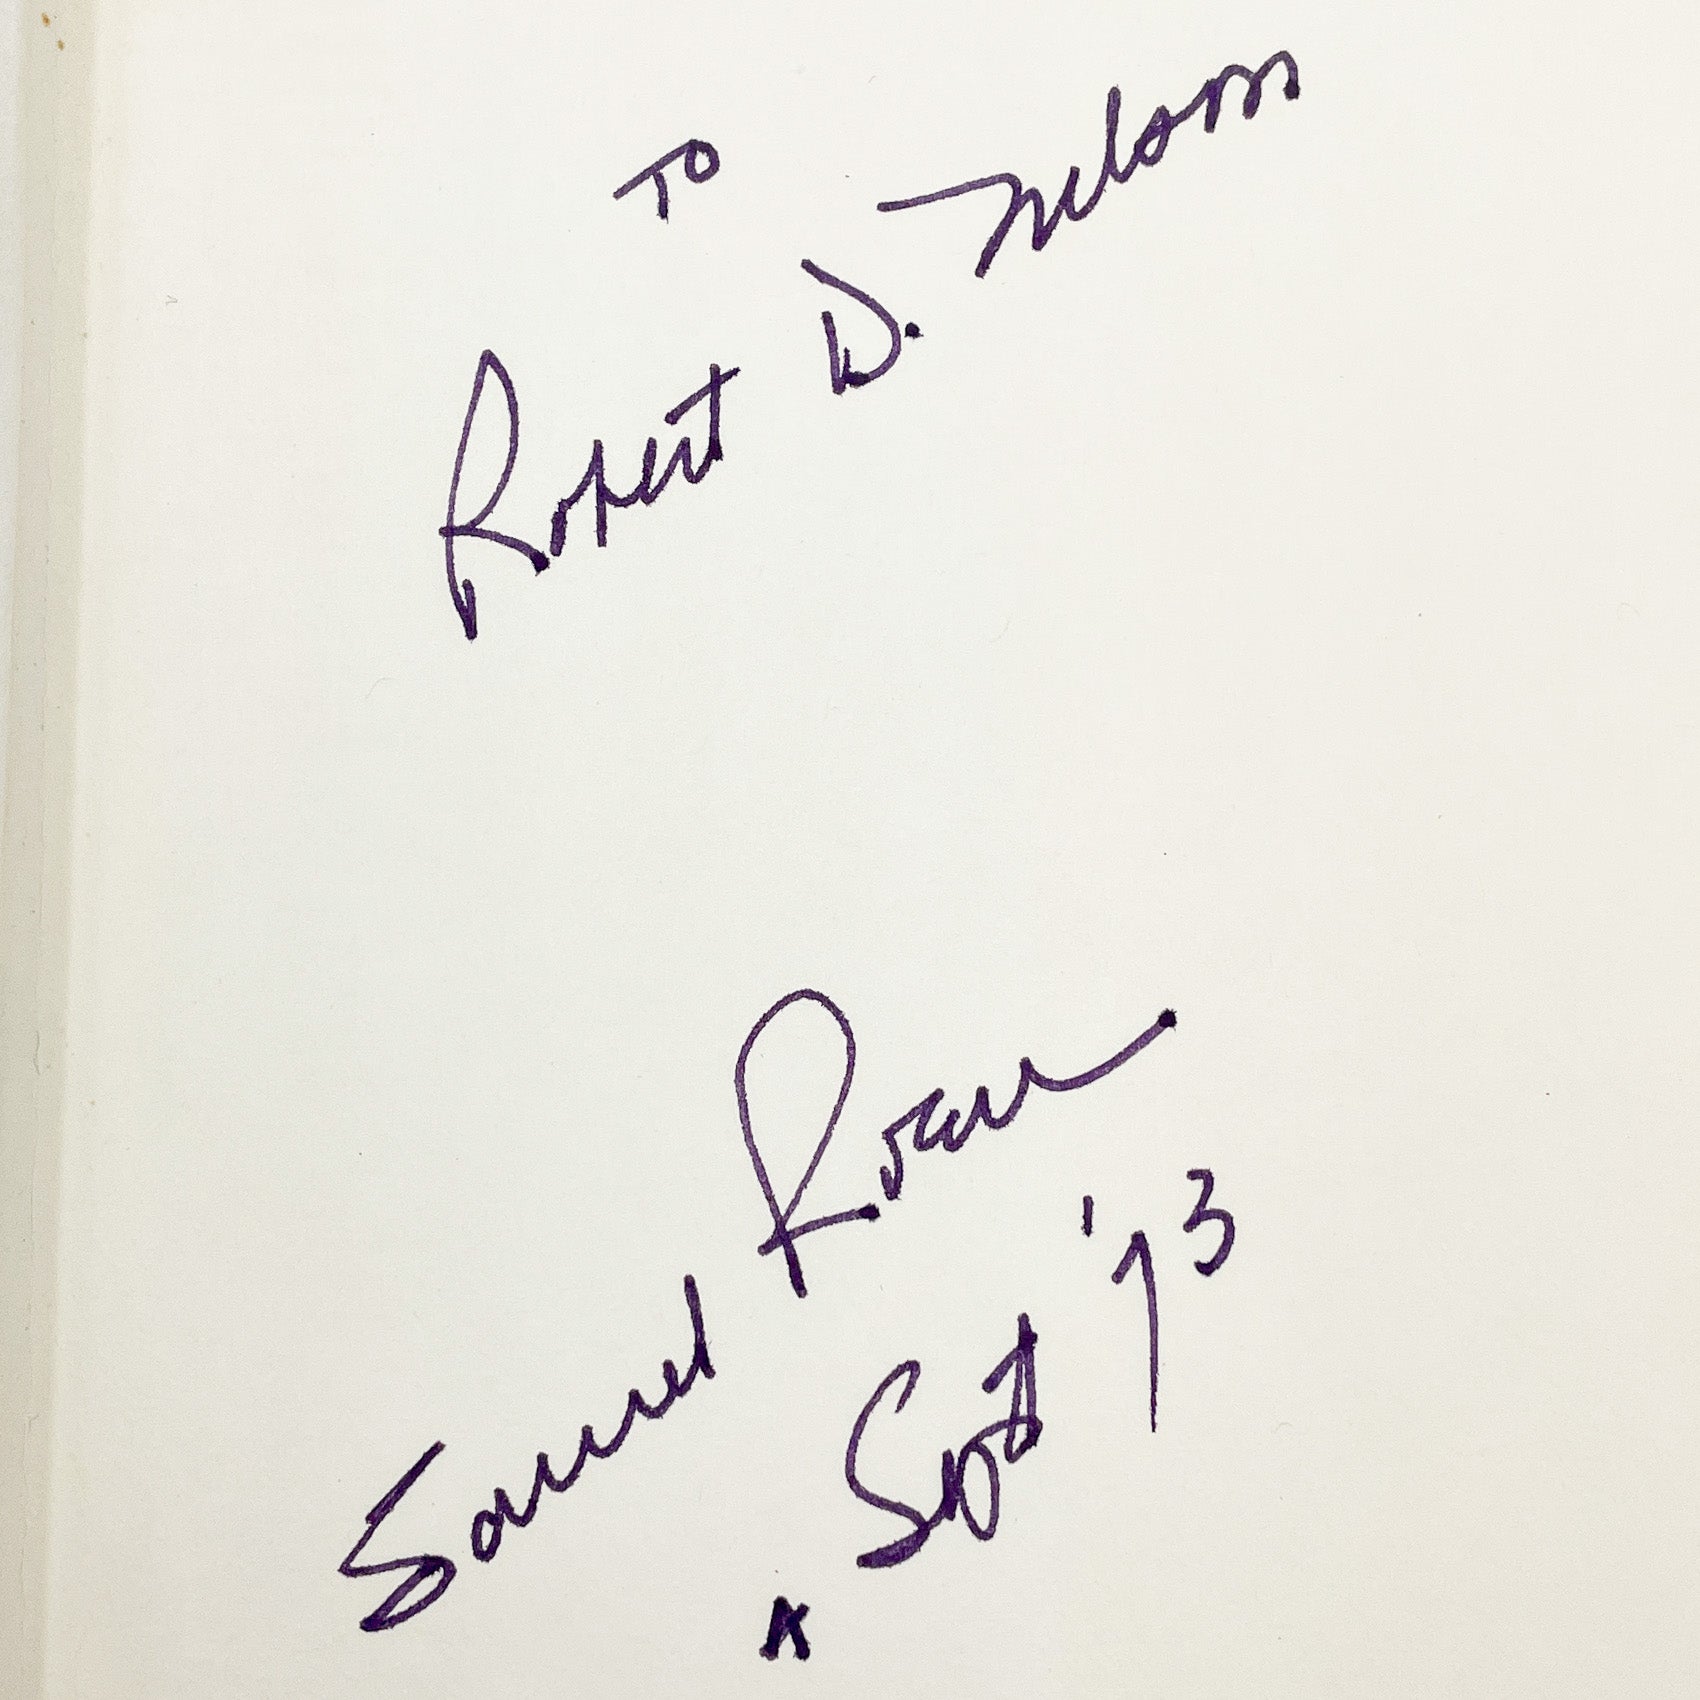 To
Robert D. Nelson
Samuel Rosen
Sept '73